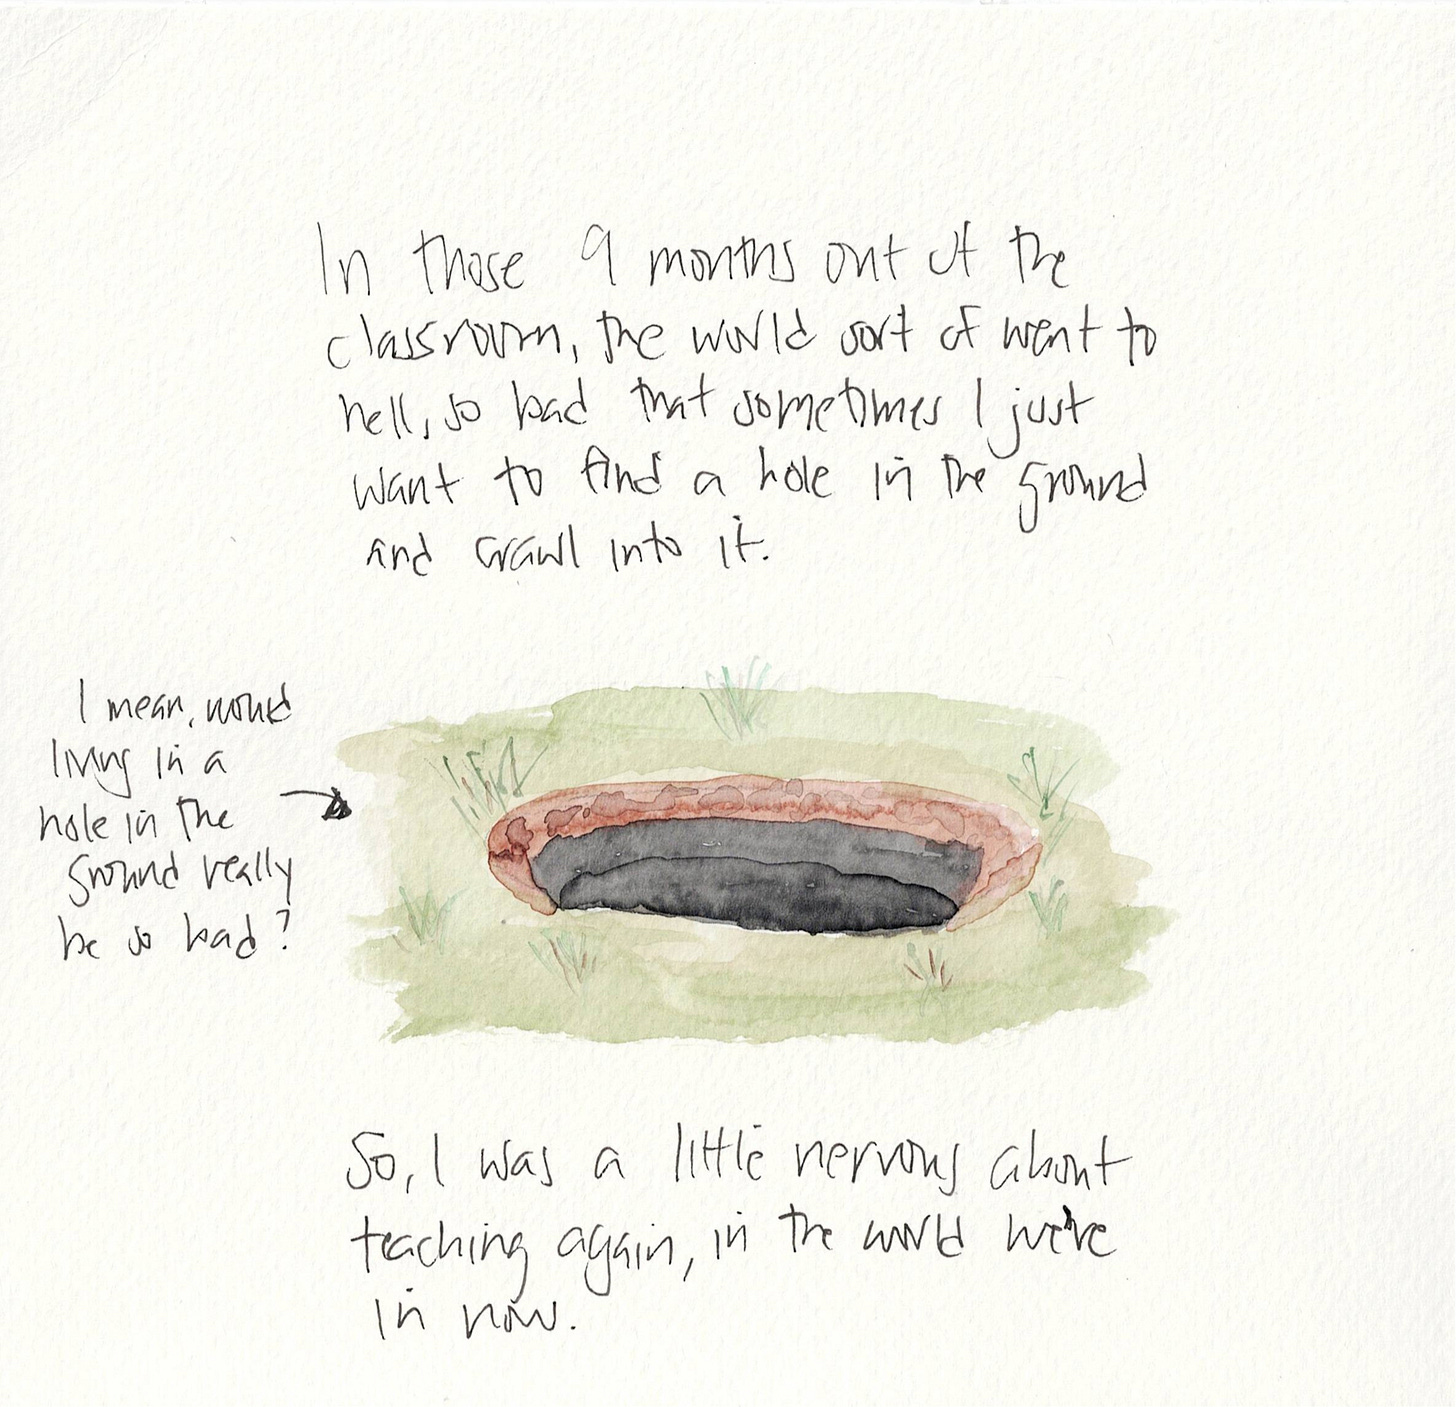 In those 9 months out of the
classroom, the world sort of went to
hell, so bad that sometimes I just
want to find a hole in the ground
and crawl into it.
I mean, would
living in a
hole in the
ground really
be so bad?
So, I was a little nervous about
teaching again, in the world we're
in now.